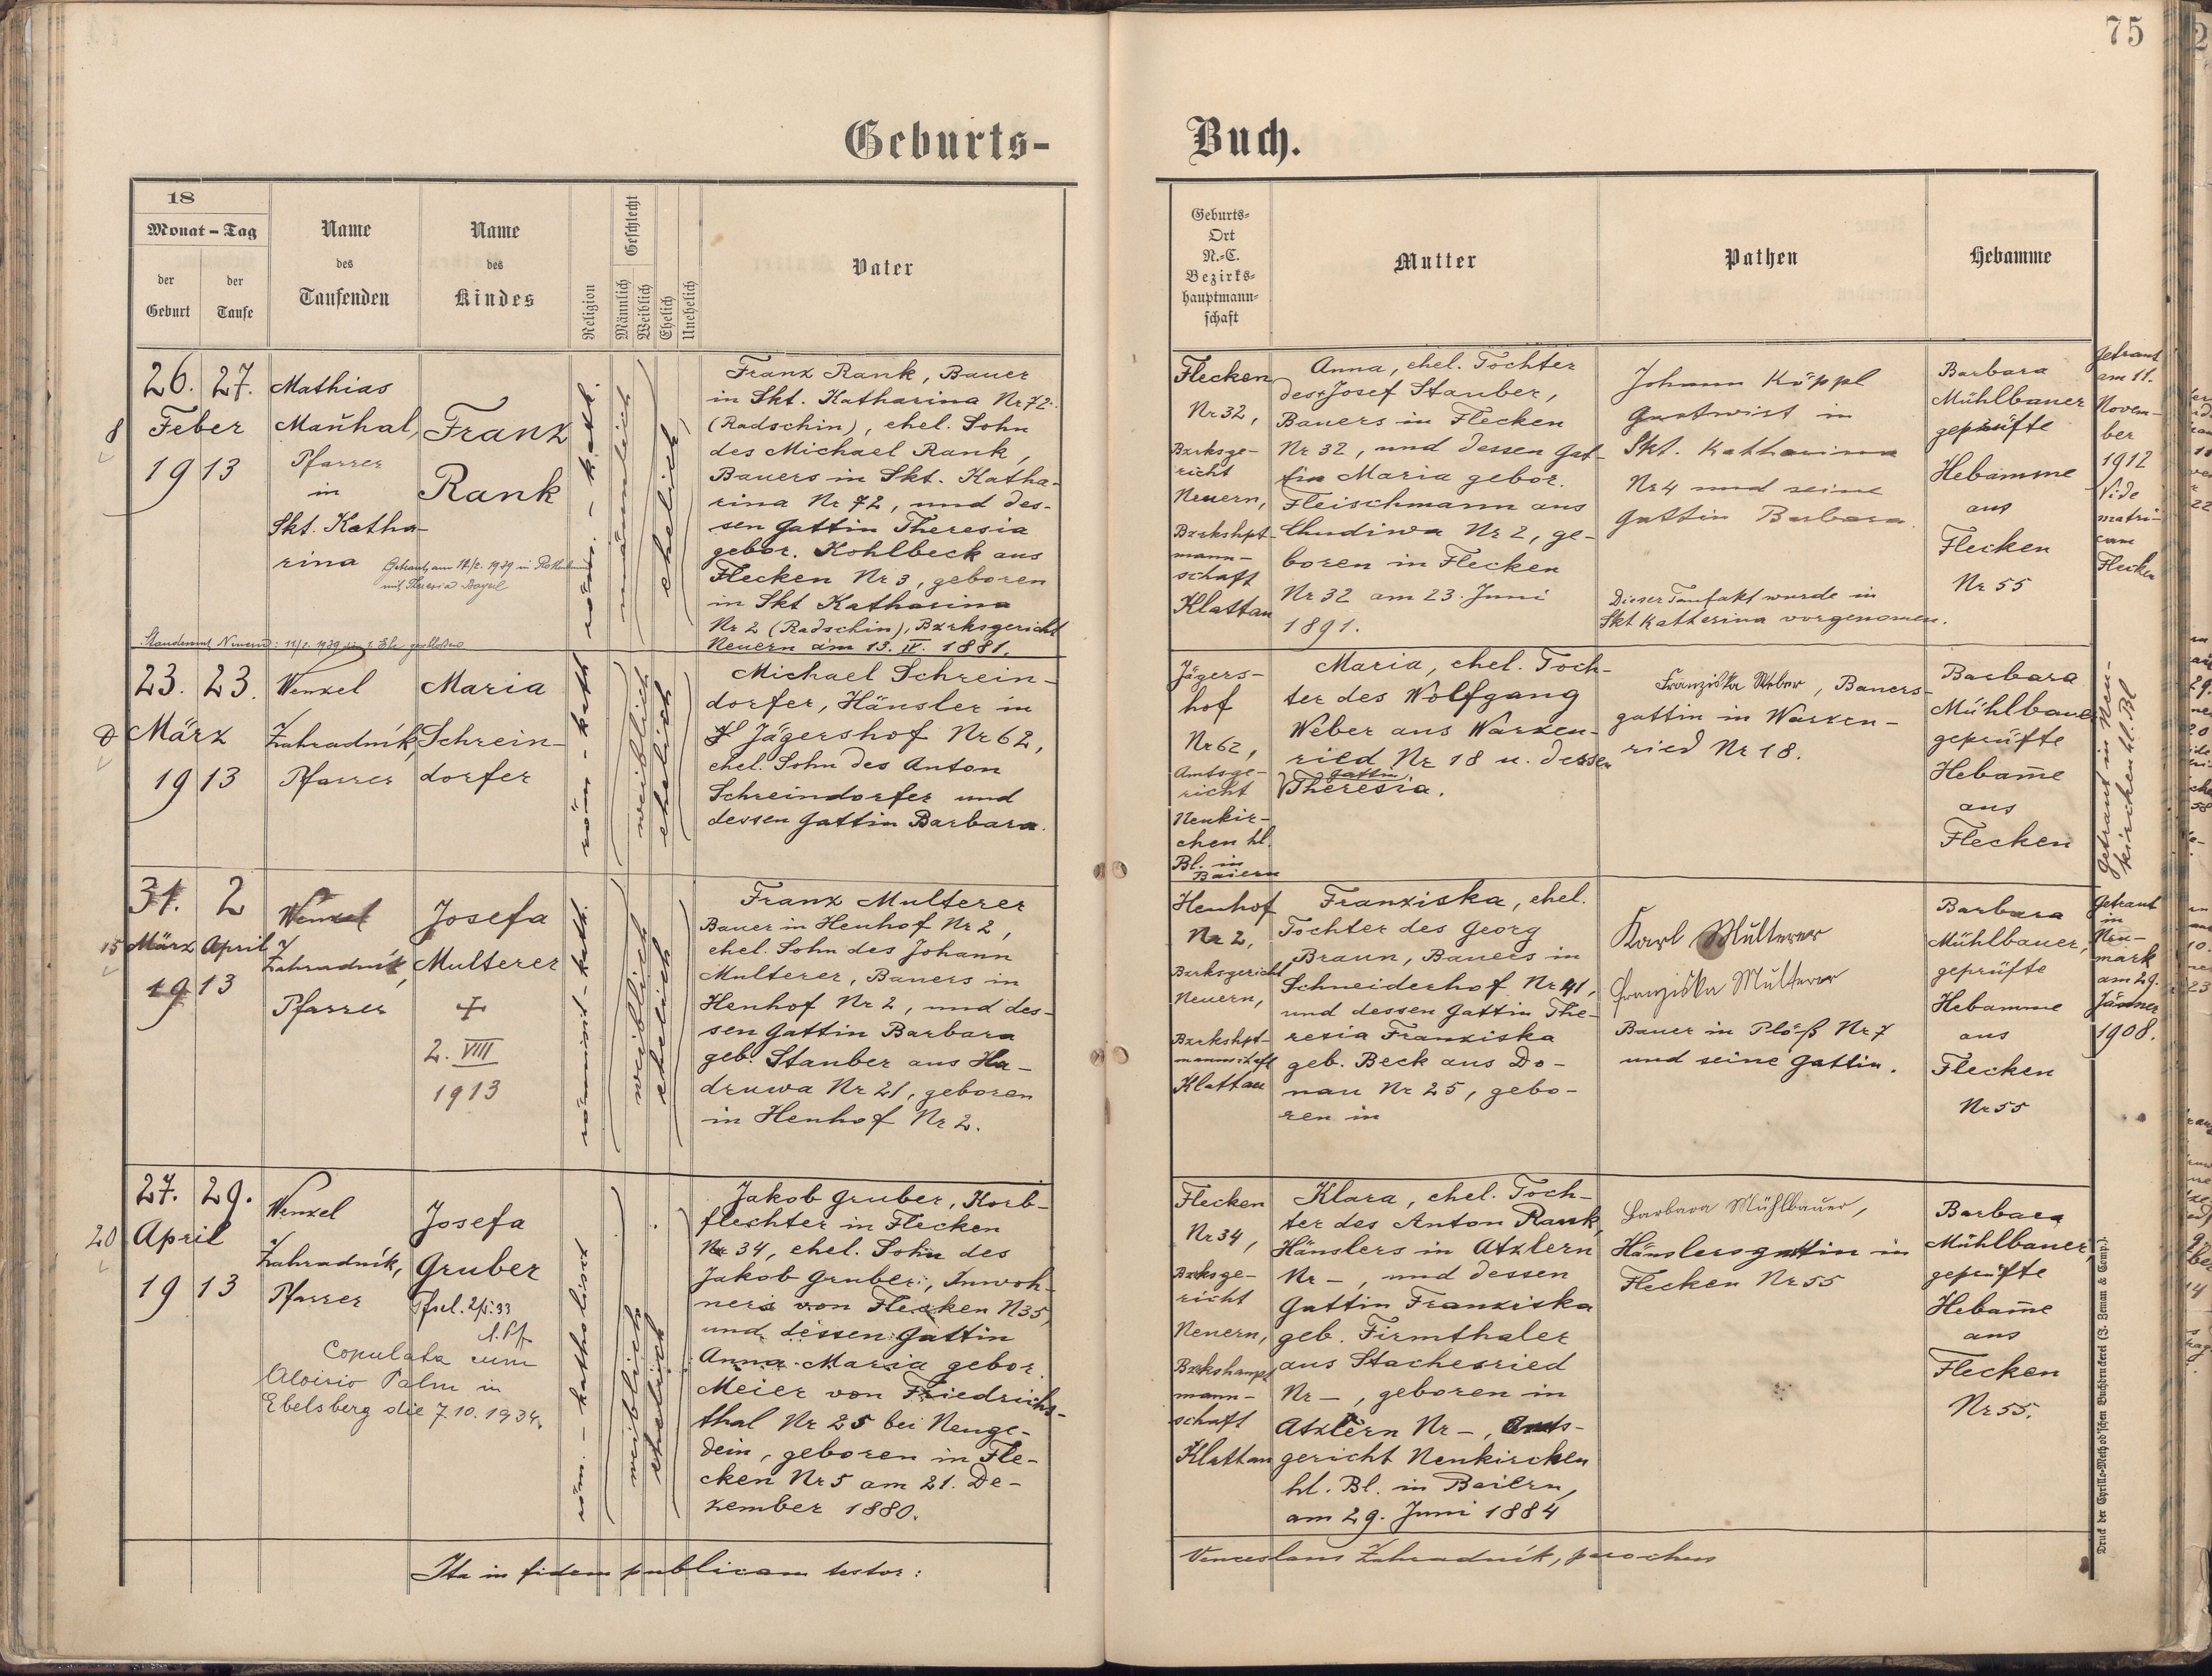 75
Geburts-
Buch.
18
Monat - Tag
der Geburt
der Taufe
Name des Taufenden
Name des Kindes
Religion
Geschlecht
Männlich
Weiblich
Ehelich
Unehelich
Vater
Geburts-
Ort
N.-C.
Bezirks-
hauptmann-
schaft
Mutter
Pathen
Hebamme
8
26. 27.
Feber
1913
Mathias
Mañhal,
Pfarrer
in
Skt. Katha-
rina
Franz
Rank
Getraut am
röm. - kath.
männlich
ehelich
Franz Rank, Bauer
in Skt. Katharina Nr 72
(Radschin), ehel. Sohn
des Michael Rank,
Bauers in Skt. Katha-
rina Nr 72, und des-
sen Gattin Theresia
gebor. Kohlbeck aus
Flecken Nr 3, geboren
in Skt Katharina
Nr 2 (Radschin), Bzrksgericht
Neuern am 13. IV. 1881.
Flecken
Nr 32,
Bzrksge-
richt
Neuern,
Bzrkshpt-
mann-
schaft
Klattau
Anna, ehel. Tochter
des + Josef Stauber,
Bauers in Flecken
Nr 32, und dessen Gat-
tin Maria gebor.
Fleischmann aus
Chudiwa Nr 2, ge-
boren in Flecken
Nr 32 am 23. Juni
1891.
Johann Köppl
Gastwirt in
Skt. Katharina
Nr 4 und seine
Gattin Barbara.
Dieser Taufakt wurde in
Skt Katherina vorgenomen.
Barbara
Mühlbauer
geprüfte
Hebamme
aus
Flecken
Nr 55
Getraut
am 11.
Novem-
ber
1912
Vide
matri-
cam
Flecken
23. 23.
März
1913
Wenzel
Zahradník,
Pfarrer
Maria
Schrein-
dorfer
röm - kath
weiblich
ehelich
Michael Schrein-
dorfer, Häusler in
Jägershof Nr 62,
ehel. Sohn des Anton
Schreindorfer und
dessen Gattin Barbara.
Jägers-
hof
Nr 62,
Amtsge-
richt
Neukir-
chen hl.
Bl. in
Baiern
Maria, ehel. Toch-
ter des Wolfgang
Weber aus Warzen-
ried Nr 18 u. dessen
Gattin
Theresia.
Franziska Weber, Bauers-
gattin in Warzen-
ried Nr 18.
Barbara
Mühlbauer
geprüfte
Hebam̄e
aus
Flecken
Getraut in Neu-
kirchen hl. Bl
15
31. 2
März April
1913
Wenzel
Zahradník,
Pfarrer
Josefa
Multerer
+
2. VIII
1913
römisch - kath.
weiblich
ehelich
Franz Multerer
Bauer in Henhof Nr 2,
ehel. Sohn des Johann
Multerer, Bauers in
Henhof Nr 2, und des-
sen Gattin Barbara
geb. Stauber aus Ha-
druwa Nr 21, geboren
in Henhof Nr 2.
Henhof
Nr 2,
Bzrksgericht
Neuern,
Bzrkshpt-
mannschaft
Klattau
Franziska, ehel.
Tochter des Georg
Braun, Bauers in
Schneiderhof Nr 41,
und dessen Gattin The-
resia Franziska
geb. Beck aus Do-
nau Nr 25, gebo-
ren in
Karl Multerer
Franziska Multerer
Bauer in Plöß Nr 7
und seine Gattin.
Barbara
Mühlbauer,
geprüfte
Hebamme
aus
Flecken
Nr 55
Getraut
in
Neu-
mark
am 29.
Jänner
1908.
20
27. 29.
April
1913
Wenzel
Zahradník,
Pfarrer
Josefa
Gruber
Copulata cum
Aloisio Palm in
Ebelsberg die 7.10.1934.
röm. - katholisch
weiblich
ehelich
Jakob Gruber, Korb-
flechter in Flecken
Nr 34, ehel. Sohn des
Jakob Gruber, Inwoh-
ners von Flecken N35,
und dessen Gattin
Anna Maria gebor.
Meier von Friedrichs-
thal Nr 25 bei Neuge-
dein, geboren in Fle-
cken Nr 5 am 21. De-
zember 1880.
Flecken
Nr 34,
Bzrksge-
richt
Neuern,
Bzrkshaupt
mann-
schaft
Klattau
Klara, ehel. Toch-
ter des Anton Rank,
Häuslers in Atzlern
Nr -, und dessen
Gattin Franziska
geb. Firmthaler
aus Stachesried
Nr -, geboren in
Atzlern Nr -, Amts-
gericht Neukirchen
hl. Bl. in Baiern,
am 29. Juni 1884
Barbara Mühlbauer,
Häuslersgattin in
Flecken Nr 55
Barbara
Mühlbauer,
geprüfte
Hebam̄e
aus
Flecken
Nr 55.
Ita in fidem publicam testor:
Venceslaus Zahradník, parochus
Druck der Cyrillo-Method'schen Buchdruckerei (J. Zeman & Comp.)